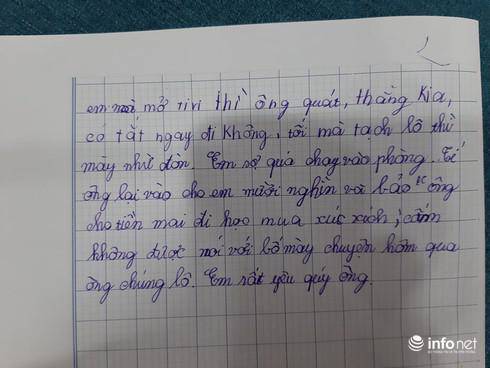 em mới mở tivi thì ông quát, thằng kia,
có tắt ngay đi không, tối mà tạch lô thì
mày nhừ đòn. Em sợ quá chạy vào phòng. Tí
ông lại vào cho em mười nghìn và bảo ông
cho tiền mai đi học mua xúc xích, cấm
không được nói với bố mày chuyện hôm qua
ông chúng lô. Em rất yêu quý ông.
infonet